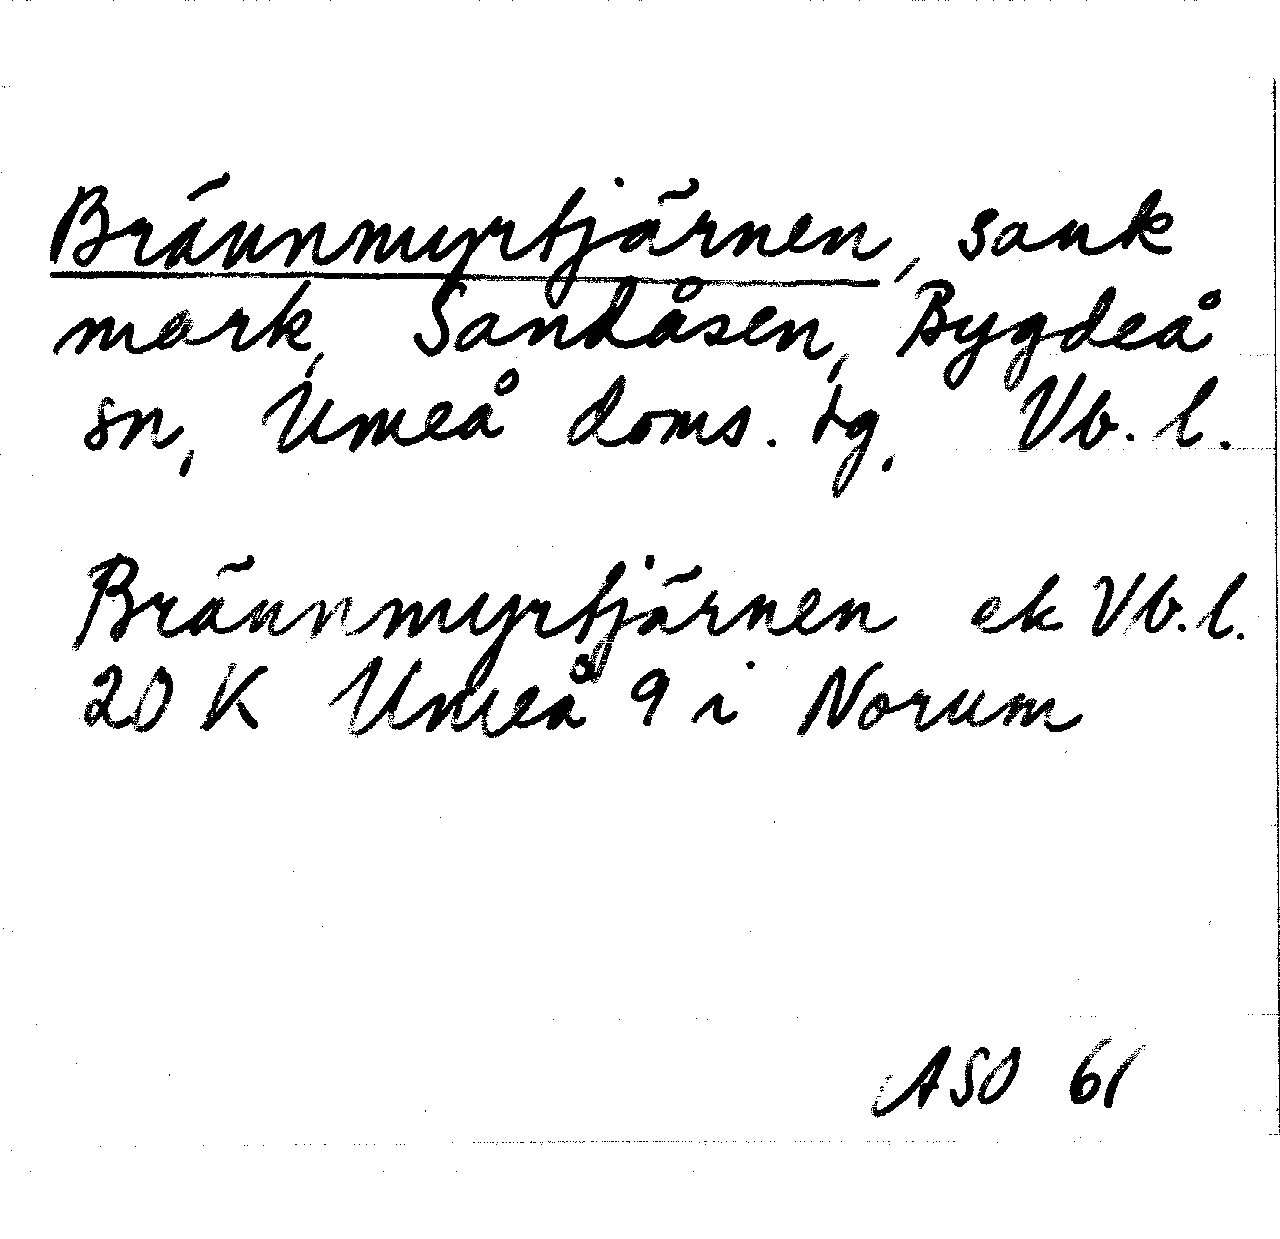 Brännmyrtjärnen, sank
mark, Sandåsen, Bygdeå
sn, Umeå doms. tg. Vb. l.
Brännmyrtjärnen ek Vb. l.
20 K Umeå 9 i Norum
ASO 61